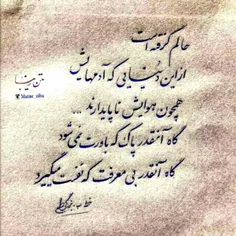 حالم گرفته است
از این دنیایی که آدمهایش
همچون هوایش ناپایدارند ...
گاه آنقدر پاک که باورت نمی شود
گاه آنقدر بی معرفت که نفست میگیرد
متن زیبا
Matne_ziba